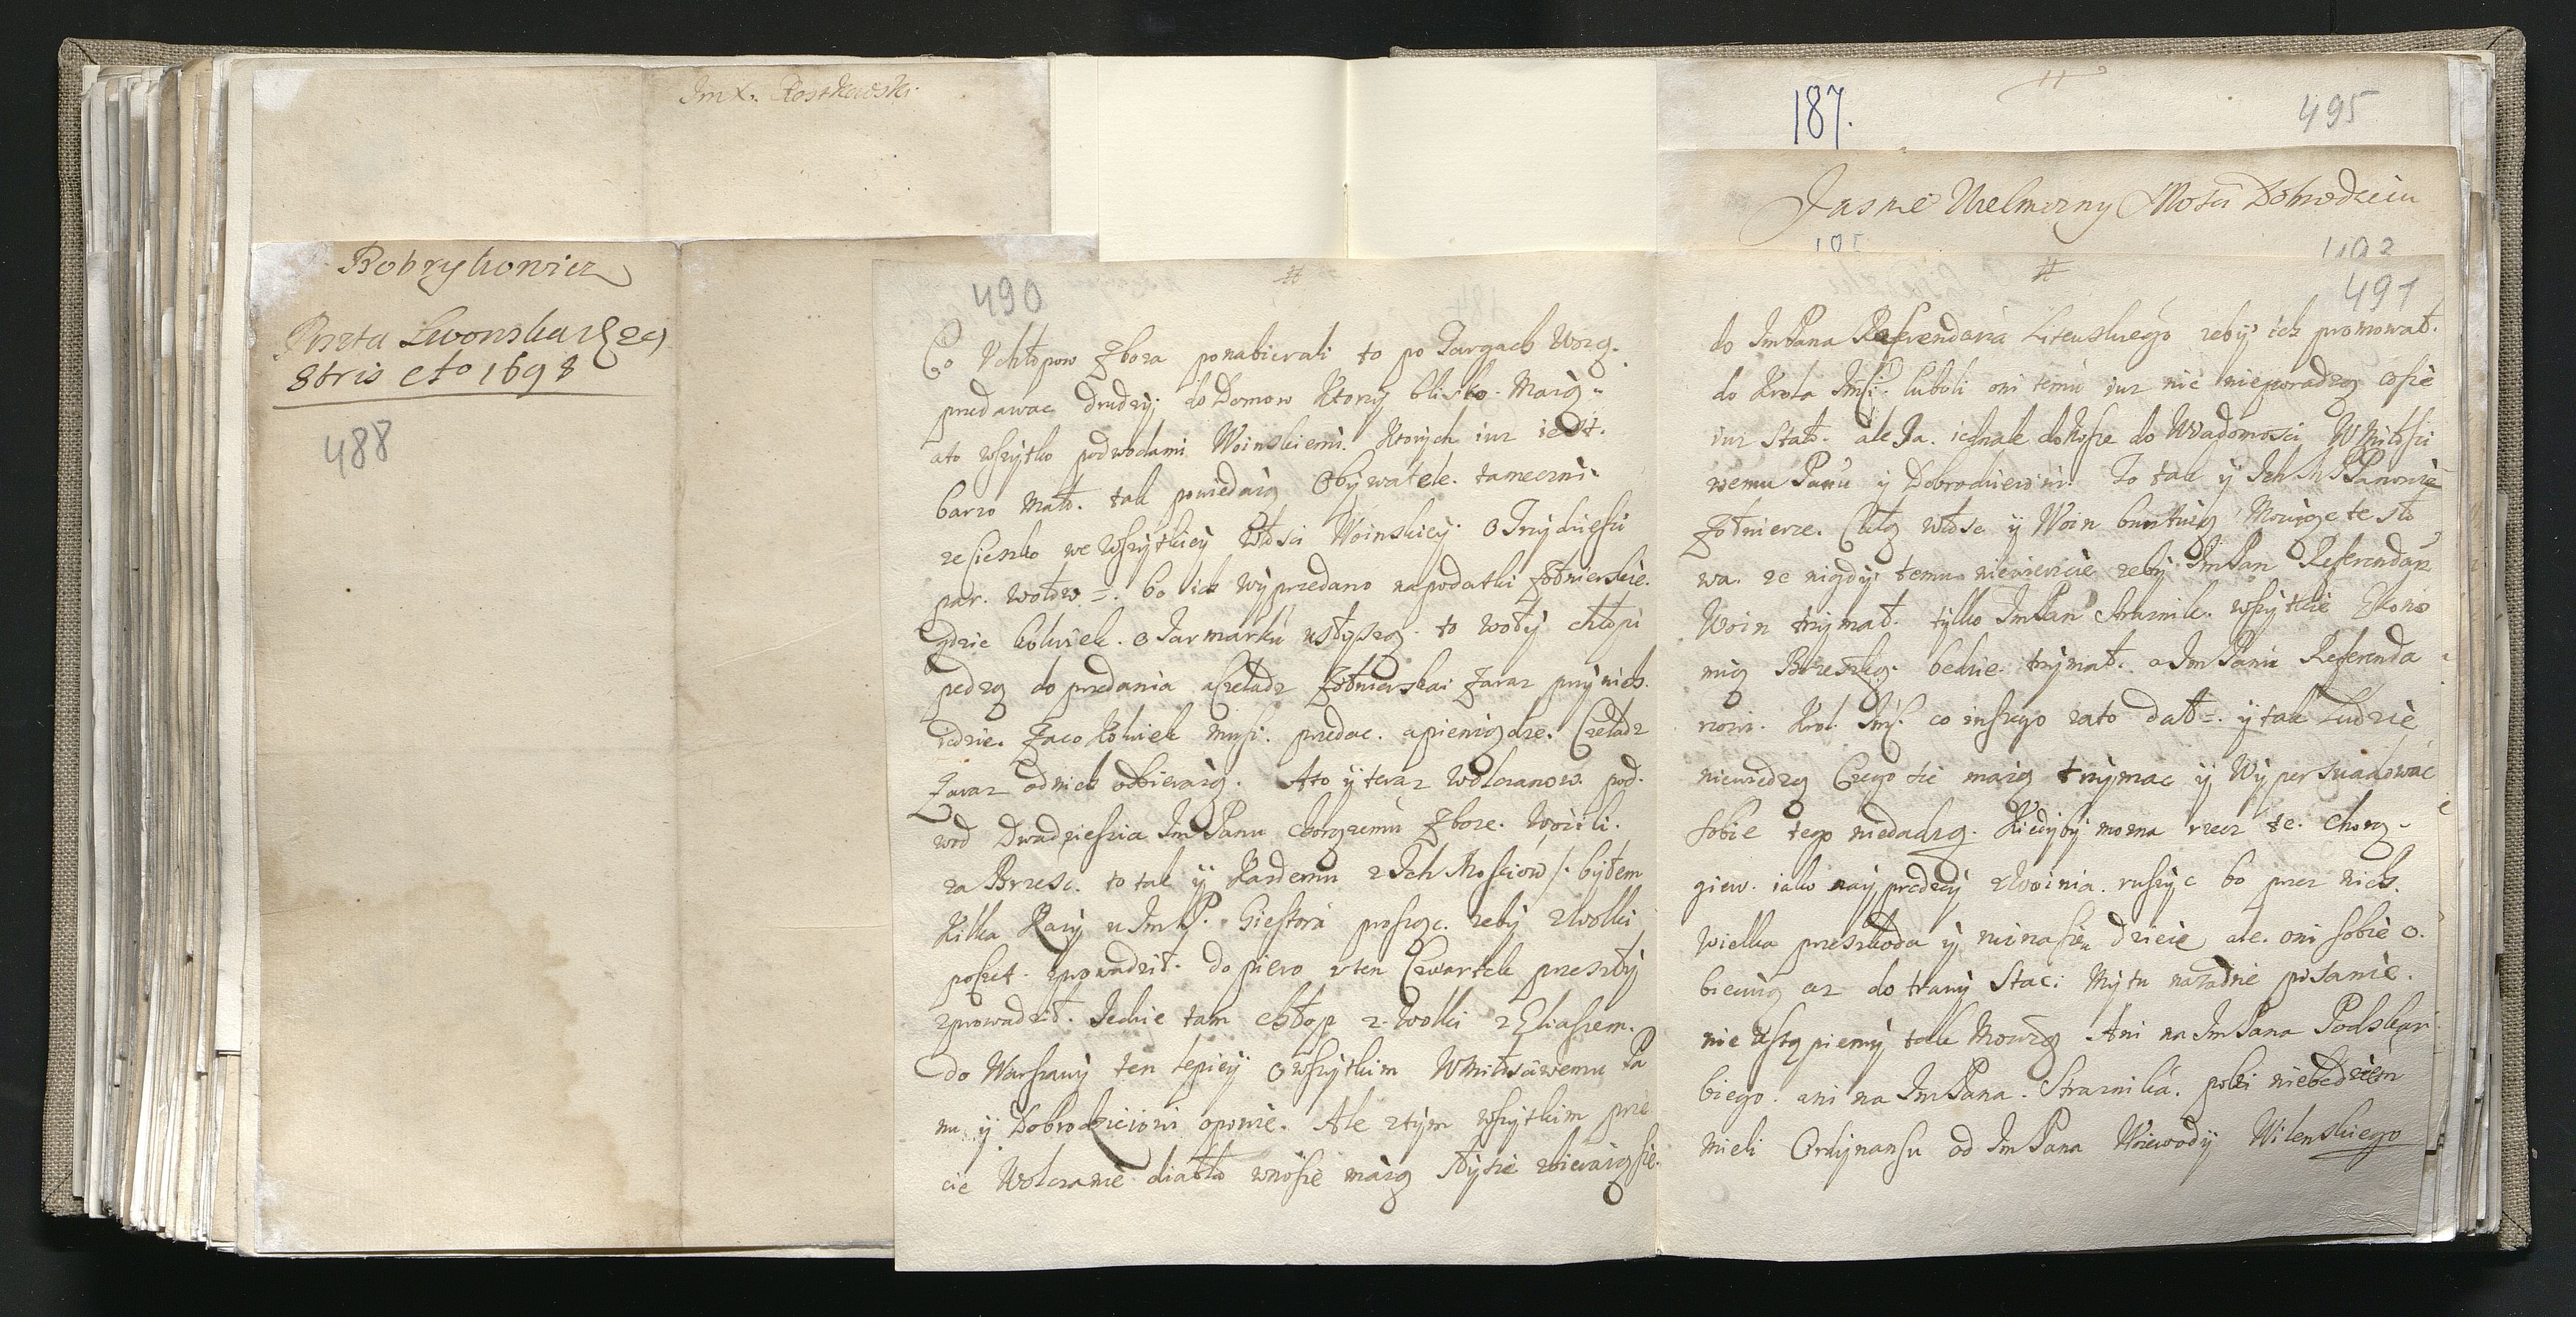 ImX. Rostkowski
Bobrykowicz
Poszta Lwowska 29
8bris Ao 1698
488
490
#
Co Vchłopow Zboza ponabierali to po Targach Wozą.
przedawac drudzy do Domow Ktorzy blisko. Maią
ato wszytko podwodami Woinskiemi. Ktorych iuz iest.
barzo mało. tak powiedaią Obywatele. tameczni
ze Ciesko we wszytkiey włosci Woinskiey O Trzydziesci
par. wołow =. bo ich wyprzedano napodatki Zołnierskie.
gdzie kolwiek. o Jarmarku usłyszą. to woły chłopi
pedzą do przedania a Czeladz Zołnierskai Zaraz przynich.
idzie. Zaco Kolwiek musi. przedac. apieniądze. Czeladz
Zaraz odnich odbieraią. Ato y teraz Wolczanow. pod.
wod Dwadziescia Im Panu chorązemu Zboze. Woziili.
za Brzesc. to tak y Kazdemu z Ich Mosciow /. byłem
Kilka Razy u ImP. Giestora prosząc. zeby zwolki
poszet. zprowadził. do piero wten Czwartek przeszły
zprowadził. Jedzie tam chłop z. Wolki z Eliaszem.
do Warszawy ten lepiey Owszytkim WMiłosciwemu Pa
nu y Dobrodzieiowi opowie. Ale ztym wszytkim prze
cie Wolczanie diabła wnosie maią stysie zbieraiąsie.
187.
#
495
Jasnie Wielmozny Mosci Dobrodzieiu
#
491
do ImPana Referendaria Litewskiego zeby ich promowat.
do Krola JMsci. luboli oni temu iuz nic nieporadzą cosie
iuz stało. ale Ja. iednak dokosze do Wiadomosci WMiłosci
wemu Panu y Dobrodzieiowi. To tak y Ich M PPanowie
Zołnierze. Całą włosc y Woin buntuią Mowiąc te sło
wa. ze nigdy temu niewierzcie zeby ImPan Referendarz
Woin trzymał. tylko ImPan Straznik. wszytkie Ekono
mią Brzeską. bedzie. trzymał. a ImPanu Referenda
rzowi. Krol JMsc. co inszego zato dał =. y tak Ludzie
niewiedzą Czego sie maią trzymac y Wypersuadowac
sobie tego niedadzą. Kiedyby mozna rzecz te. chorą-
giew. iako nayprędzy zWoinia. ruszyc bo przez nich.
wielka przeszkoda y ruinasie dzieie ale. oni sobie o.
biecuią az do trawy Stac: My tu nazadne pisanie.
nie ustąpiemy tak Mowią Ani na ImPana Podskar
biego. ani na ImPana. Straznika. poki niebedziem
mieli Ordynansu od ImPana Woiewody Wilenskiego